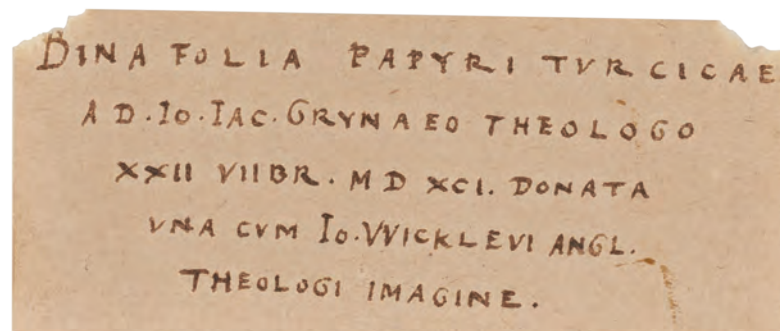 BINA FOLIA PAPYRI TVRCICAE
A D. IO. IAC. GRYNAEO THEOLOGO
XXII VIIBR. M D XCI. DONATA
VNA CVM IO. WICKLEVI ANGL.
THEOLOGI IMAGINE.